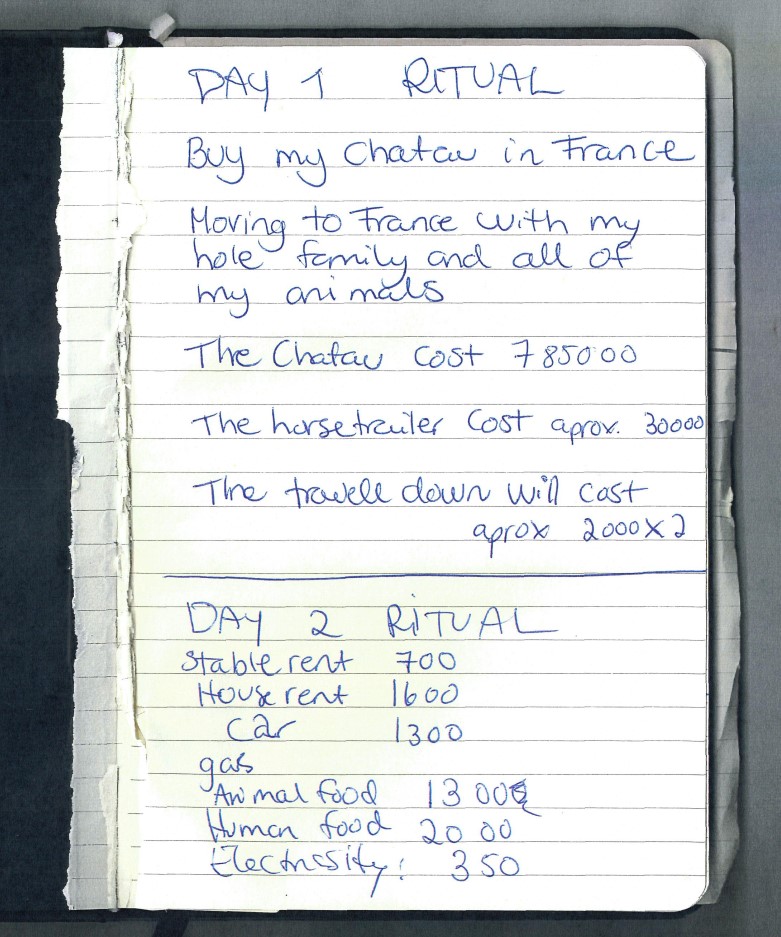 DAY 1 RITUAL
Buy my Chatau in France
Moving to France with my
hole family and all of
my animals
The Chatau cost 785000
The horsetrailer cost aprox. 30000
The travell down will cost
aprox 2000x2
DAY 2 RITUAL
Stable rent 700
House rent 1600
Car 1300
gas
Animal food 1300
Human food 2000
Electricsity: 350